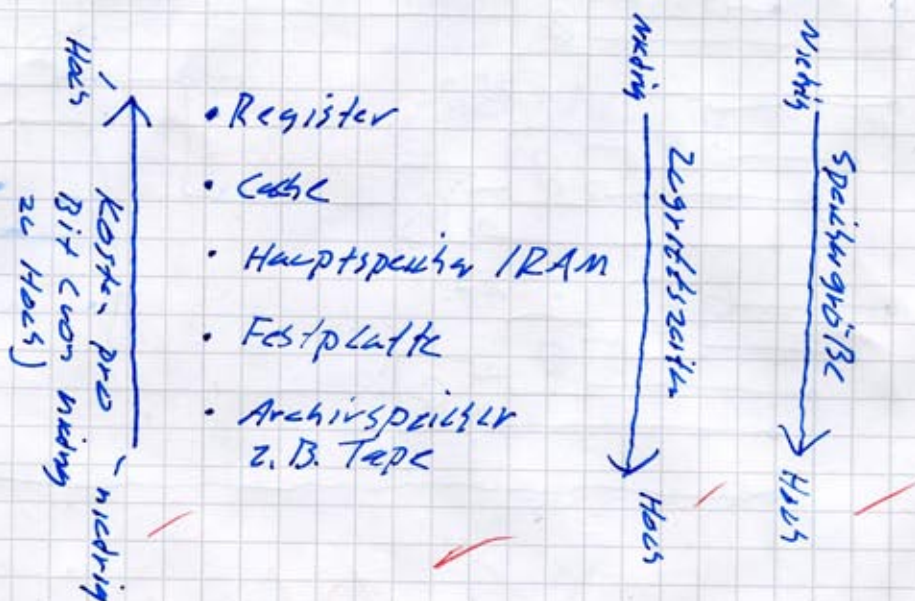 Hoch
Kosten pro
Bit (von niedrig
zu Hoch)
niedrig
• Register
• Cache
• Hauptspeicher /RAM
• Festplatte
• Archivspeicher
z.B. Tape
Niedrig
Zugriffszeiten
Hoch
Niedrig
Speichergröße
Hoch